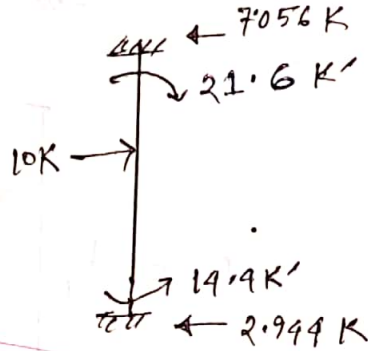 7.056 K
21.6 K'
10K
14.4K'
2.944 K